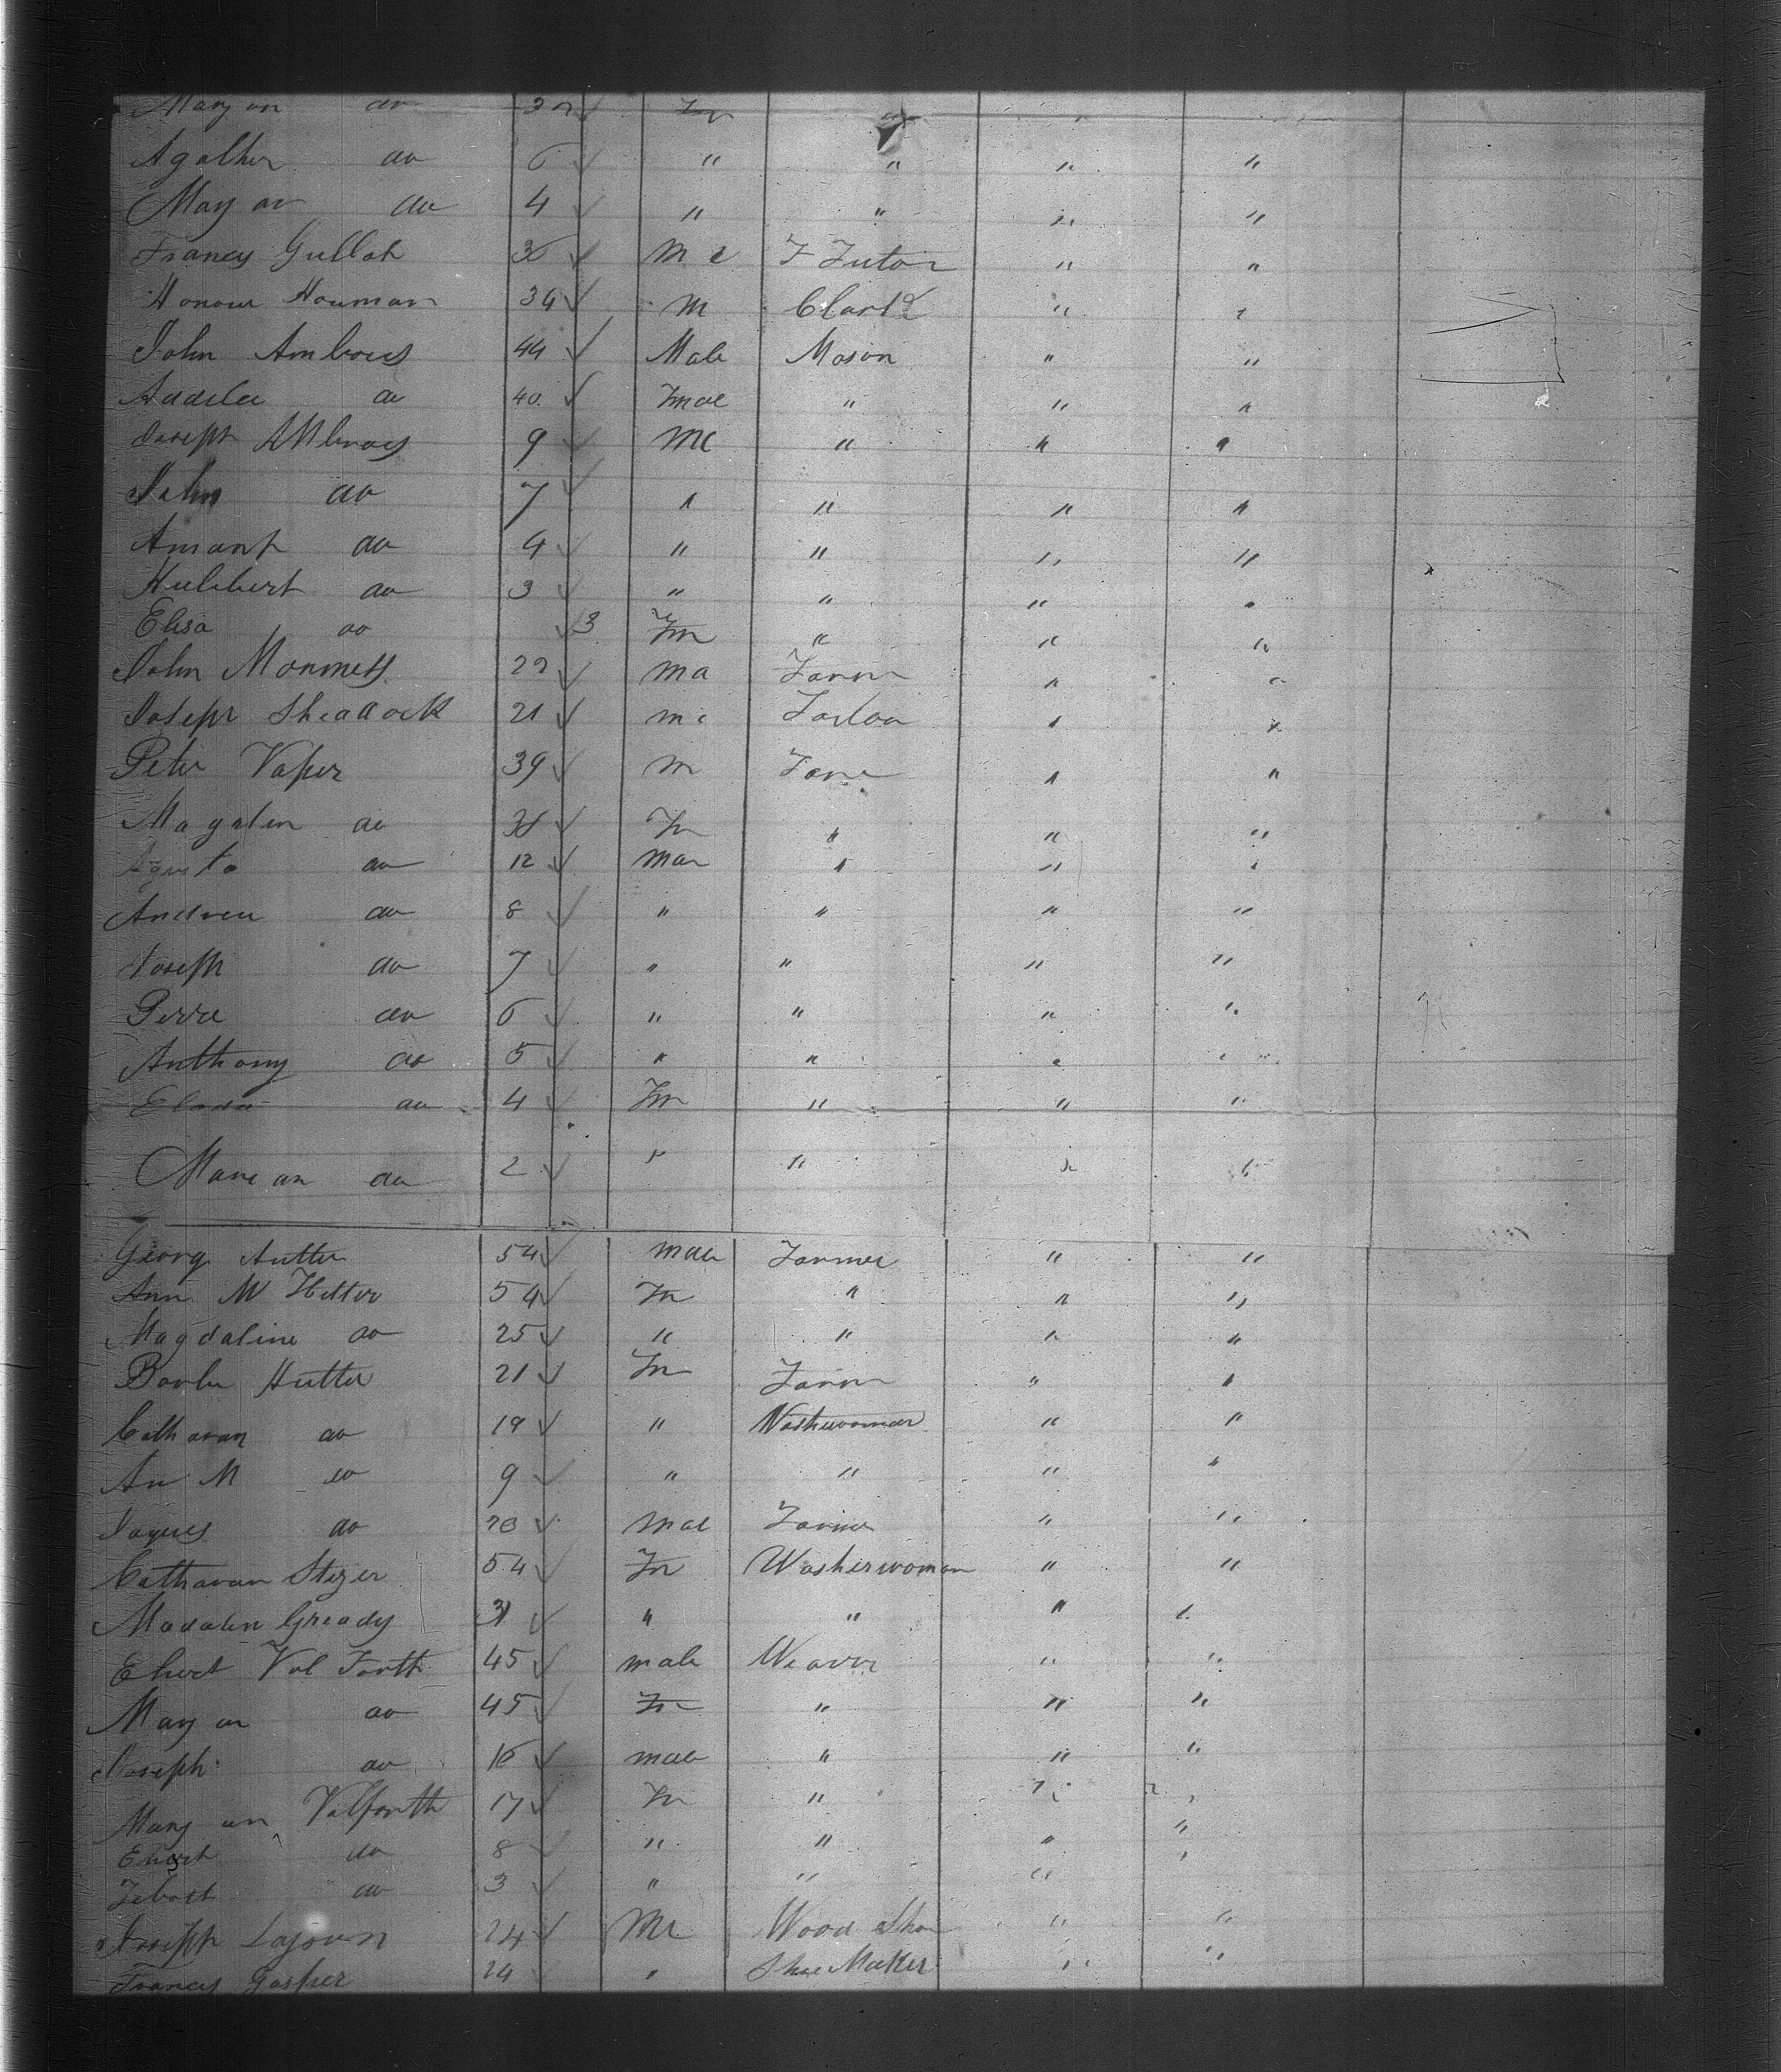 Mary an do " "
Agather do 6 " " " "
Mary an do 4 " " " "
Francis Gullot 36 M e F Tutor " "
Honour Houman 34 M Clark " "
John Ambrois 44 Male Mason " "
Addela do 40 Fmae " " "
Joseph AMbrois 9 Me " " "
John do 7 " " " "
Amant do 4 " " " "
Hulibert do 3 " " " "
Elisa do 3 Fm " " "
John Monmets 22 ma Farm " "
Joseph Sheadock 21 me " "
Peter Vaper 39 M Farm " "
Magalen do Fm " " "
Agusta do 12 Mae " " "
Andreu do 8 " " " "
Joseph do 7 " " " "
Perre do 6 " " " "
Anthony do 5 " " " "
do 4 Fm " " "
Marie an do 2 " " " "
Georg Hutter 54 mae Farmer " "
Ann M Hetter 54 Fm " " "
Magdaline do 25 " " " "
Barbe Hutter 21 Fm Farm " "
Catharan do 19 " Washwoman " "
An M do 9 " " " "
Jaques do mae Farmer " "
Catharan Steger 54 Fm Washerwoman " "
Madalen Gready 31 " " " "
Ehert Val Forth 45 male Weaver " "
Mary an do 45 Fm " " "
Joseph do 16 mae " " "
Mary an Valforth 17 Fm " " "
do 8 " " " "
do 3 " " "
Joseph Lajoun 24 Me Wood Shoe " "
Francis Gasper 24 " Shoe Maker " "